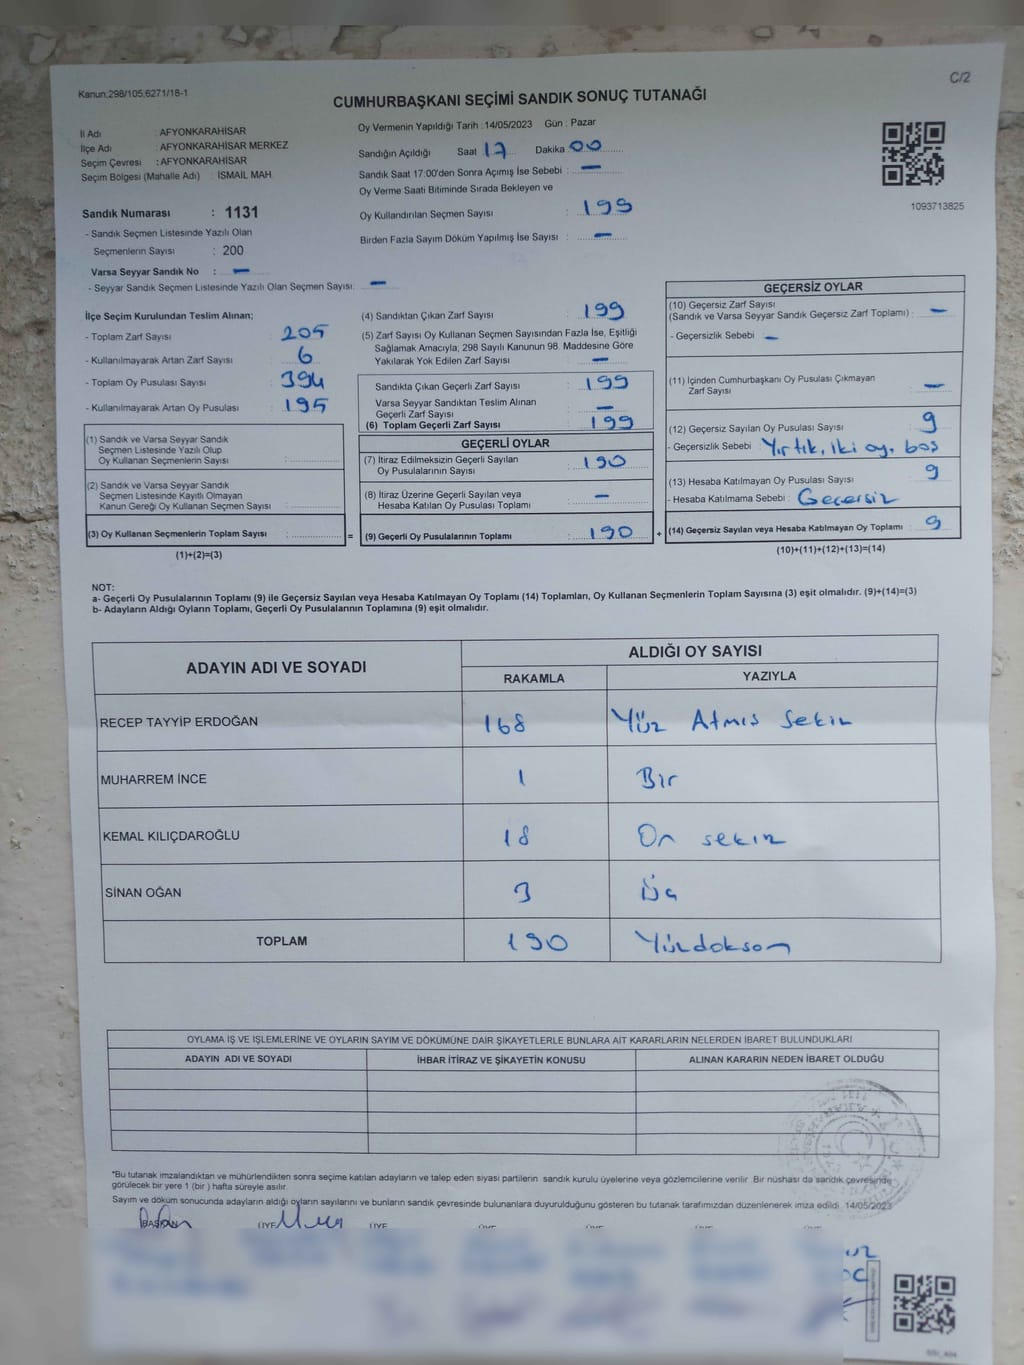 C/2
Kanun:298/105,6271/18-1
CUMHURBAŞKANI SEÇİMİ SANDIK SONUÇ TUTANAĞI
İl Adı : AFYONKARAHİSAR
İlçe Adı : AFYONKARAHİSAR MERKEZ
Seçim Çevresi : AFYONKARAHİSAR
Seçim Bölgesi (Mahalle Adı) : İSMAİL MAH.
Oy Vermenin Yapıldığı Tarih :14/05/2023 Gün : Pazar
Sandığın Açıldığı Saat 17 Dakika 00
Sandık Saat 17:00'den Sonra Açımış İse Sebebi : —
Oy Verme Saati Bitiminde Sırada Bekleyen ve
Oy Kullandırılan Seçmen Sayısı : 199
Birden Fazla Sayım Döküm Yapılmış İse Sayısı : —
1093713825
Sandık Numarası : 1131
- Sandık Seçmen Listesinde Yazılı Olan
Seçmenlerin Sayısı : 200
Varsa Seyyar Sandık No : —
- Seyyar Sandık Seçmen Listesinde Yazılı Olan Seçmen Sayısı: —
İlçe Seçim Kurulundan Teslim Alınan;
- Toplam Zarf Sayısı : 205
- Kullanılmayarak Artan Zarf Sayısı : 6
- Toplam Oy Pusulası Sayısı : 394
- Kullanılmayarak Artan Oy Pusulası : 195
(1) Sandık ve Varsa Seyyar Sandık
Seçmen Listesinde Yazılı Olup
Oy Kullanan Seçmenlerin Sayısı :
(2) Sandık ve Varsa Seyyar Sandık
Seçmen Listesinde Kayıtlı Olmayan
Kanun Gereği Oy Kullanan Seçmen Sayısı :
(3) Oy Kullanan Seçmenlerin Toplam Sayısı : =
(1)+(2)=(3)
(4) Sandıktan Çıkan Zarf Sayısı : 199
(5) Zarf Sayısı Oy Kullanan Seçmen Sayısından Fazla İse, Eşitliği
Sağlamak Amacıyla; 298 Sayılı Kanunun 98. Maddesine Göre
Yakılarak Yok Edilen Zarf Sayısı : —
Sandıkta Çıkan Geçerli Zarf Sayısı : 199
Varsa Seyyar Sandıktan Teslim Alınan
Geçerli Zarf Sayısı : —
(6) Toplam Geçerli Zarf Sayısı : 199
GEÇERLİ OYLAR
(7) İtiraz Edilmeksizin Geçerli Sayılan
Oy Pusulalarının Sayısı : 190
(8) İtiraz Üzerine Geçerli Sayılan veya
Hesaba Katılan Oy Pusulası Toplamı : —
(9) Geçerli Oy Pusulalarının Toplamı : 190 +
GEÇERSİZ OYLAR
(10) Geçersiz Zarf Sayısı
(Sandık ve Varsa Seyyar Sandık Geçersiz Zarf Toplamı) : —
- Geçersizlik Sebebi : —
(11) İçinden Cumhurbaşkanı Oy Pusulası Çıkmayan
Zarf Sayısı : —
(12) Geçersiz Sayılan Oy Pusulası Sayısı : 9
- Geçersizlik Sebebi : Yırtık, iki oy, boş
(13) Hesaba Katılmayan Oy Pusulası Sayısı : 9
- Hesaba Katılmama Sebebi : Geçersiz
(14) Geçersiz Sayılan veya Hesaba Katılmayan Oy Toplamı : 9
(10)+(11)+(12)+(13)=(14)
NOT:
a- Geçerli Oy Pusulalarının Toplamı (9) ile Geçersiz Sayılan veya Hesaba Katılmayan Oy Toplamı (14) Toplamları, Oy Kullanan Seçmenlerin Toplam Sayısına (3) eşit olmalıdır. (9)+(14)=(3)
b- Adayların Aldığı Oyların Toplamı, Geçerli Oy Pusulalarının Toplamına (9) eşit olmalıdır.
ADAYIN ADI VE SOYADI
ALDIĞI OY SAYISI
RAKAMLA YAZIYLA
RECEP TAYYİP ERDOĞAN 168 Yüz Atmış Sekiz
MUHARREM İNCE 1 Bir
KEMAL KILIÇDAROĞLU 18 On sekiz
SİNAN OĞAN 3 Üç
TOPLAM 190 Yüzdoksan
OYLAMA İŞ VE İŞLEMLERİNE VE OYLARIN SAYIM VE DÖKÜMÜNE DAİR ŞİKAYETLERLE BUNLARA AİT KARARLARIN NELERDEN İBARET BULUNDUKLARI
ADAYIN ADI VE SOYADI İHBAR İTİRAZ VE ŞİKAYETİN KONUSU ALINAN KARARIN NEDEN İBARET OLDUĞU
*Bu tutanak imzalandıktan ve mühürlendikten sonra seçime katılan adayların ve talep eden siyasi partilerin sandık kurulu üyelerine veya gözlemcilerine verilir. Bir nüshası da sandık çevresinde
görülecek bir yere 1 (bir ) hafta süreyle asılır.
Sayım ve döküm sonucunda adayların aldığı oyların sayılarını ve bunların sandık çevresinde bulunanlara duyurulduğunu gösteren bu tutanak tarafımızdan düzenlenerek imza edildi. 14/05/2023
BAŞKAN ÜYE ÜYE